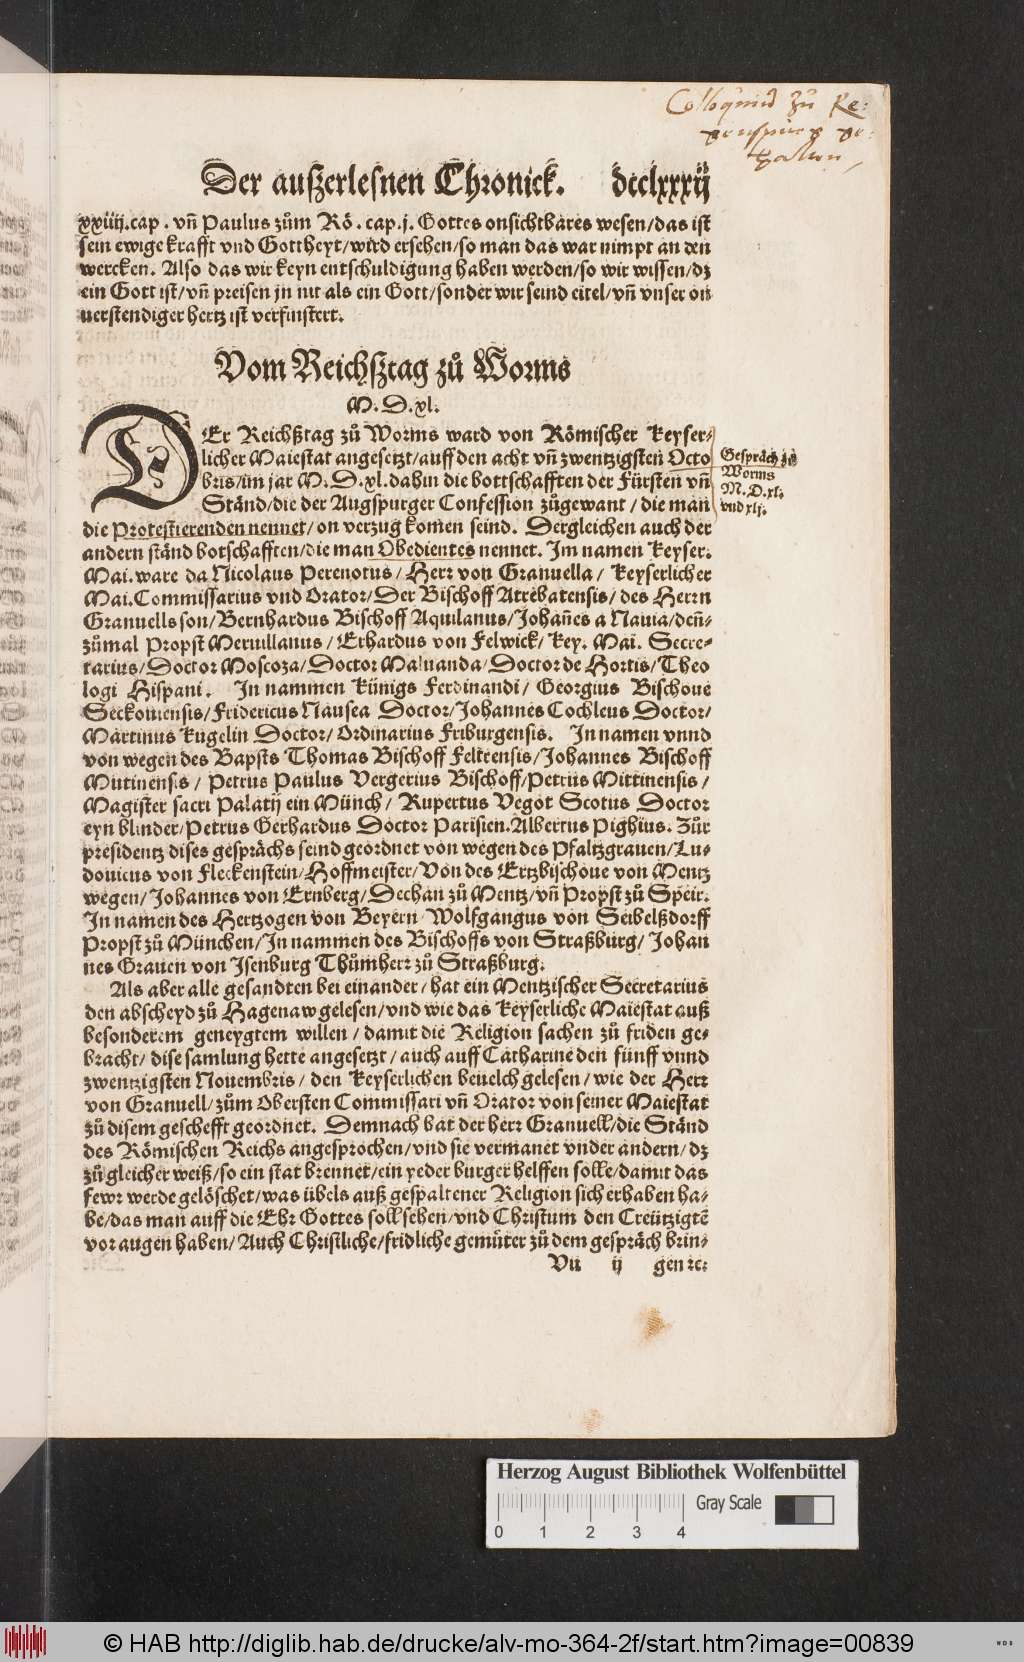 Colloquiũ zů Re:
genspurg ge:
halten,
Der außerlesnen Chronick. dcclxxxij
xxiiij.cap. vñ Paulus zům Rö. cap.j. Gottes onsichtbares wesen/das ist
sein ewige krafft vnd Gottheyt/wird ersehen/so man das war nimpt an den
wercken. Also das wir keyn entschuldigung haben werden/so wir wissen/dz
ein Gott ist/vñ preisen jn nit als ein Gott/sonder wir seind eitel/vñ vnser on
uerstendiger hertz ist verfinstert.
Vom Reichsztag zů Worms
M.D.xl.
DEr Reichßtag zů Worms ward von Römischer Keyser-
licher Maiestat angesetzt/auff den acht vñ zwentzigsten Octo
bris/im jar M.D.xl.dahin die bottschafften der Fürsten vñ
Ständ/die der Augspurger Confession zůgewant/die man
die Protestierenden nennet/on verzug komen seind. Dergleichen auch der
andern ständ botschafften/die man Obedientes nennet. Im namen Keyser.
Mai.ware da Nicolaus Perenotus/Herr von Granuella/Keyserlicher
Mai.Commissarius vnd Orator/Der Bischoff Atrebatensis/des Herrn
Granuells son/Bernhardus Bischoff Aquilanus/Johañes a Nauia/deñ-
zůmal Propst Meruillanus/Erhardus von Felwick/Key. Mai. Secre-
tarius/Doctor Moscoza/Doctor Maluanda/Doctor de Hortis/Theo
logi Hispani. In nammen Künigs Ferdinandi/Georgius Bischoue
Seckouiensis/Fridericus Nausea Doctor/Johannes Cochleus Doctor/
Martinus Kugelin Doctor/Ordinarius Friburgensis. In namen vnnd
von wegen des Bapsts Thomas Bischoff Feltrensis/Johannes Bischoff
Mutinensis/Petrus Paulus Vergerius Bischoff/Petrus Mittinensis/
Magister sacri Palatij ein Münch/Rupertus Vegot Scotus Doctor
eyn blinder/Petrus Gerhardus Doctor Parisien.Albertus Pighius. Zůr
presidentz dises gesprächs seind geordnet von wegen des Pfaltzgrauen/Lu-
douicus von Fleckenstein/Hoffmeister/Von des Ertzbischoue von Mentz
wegen/Johannes von Ernberg/Dechan zů Mentz/vñ Propst zů Speir.
In namen des Hertzogen von Beyern Wolfgangus von Seibelßdorff
Propst zů München/In nammen des Bischoffs von Straßburg/Johan
nes Grauen von Isenburg Thůmherr zů Straßburg.
Als aber alle gesandten bei einander/hat ein Mentzischer Secretarius
den abscheyd zů Hagenaw gelesen/vnd wie das Keyserliche Maiestat auß
besonderem geneygtem willen/damit die Religion sachen zů friden ge-
bracht/dise samlung hette angesetzt/auch auff Catharine den fünff vnnd
zwentzigsten Nouembris/den Keyserlichen beuelch gelesen/wie der Herr
von Granuell/zům Obersten Commissari vñ Orator von seiner Maiestat
zů disem geschefft geordnet. Demnach hat der herr Granuell/die Ständ
des Römischen Reichs angesprochen/vnd sie vermanet vnder andern/dz
zů gleicher weiß/so ein stat brennet/ein yeder burger helffen solle/damit das
fewr werde gelöschet/was übels auß gespaltener Religion sich erhaben ha-
be/das man auff die Ehr Gottes soll sehen/vnd Christum den Creützigtẽ
vor augen haben/Auch Christliche/fridliche gemůter zů dem gespräch brin-
Vu ij gen rc:
Gespräch zů
Worms
M.D.xl.
vnd xlj.
Herzog August Bibliothek Wolfenbüttel
Gray Scale
0 1 2 3 4
© HAB http://diglib.hab.de/drucke/alv-mo-364-2f/start.htm?image=00839